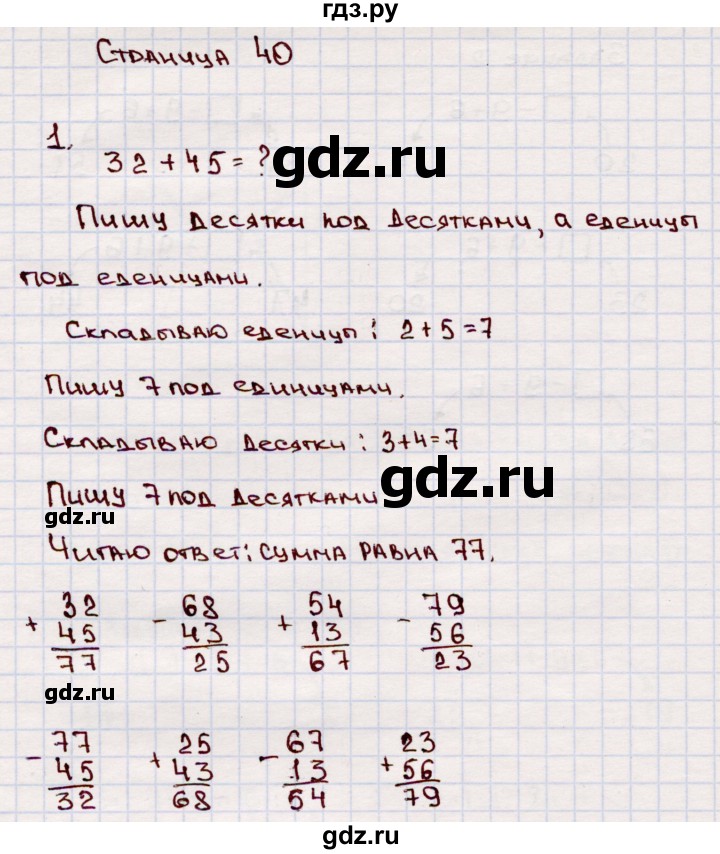 гдз.ру
Страница 40
1.
32+45=?
gdz.ru
Пишу десятки под десятками, а еденицы
под еденицами.
Складываю еденицы: 2+5=7
Пишу 7 под единицами.
Складываю десятки: 3+4=7
gdz.ru
Пишу 7 под десятками
gdz.ru
Читаю ответ: сумма равна 77.
32 68 54 79
+ 45 - 43 + 13 - 56
77 25 67 23
gdz.ru
77 25 67 23
- 45 + 43 - 13 + 56
32 68 54 79
gdz.ru